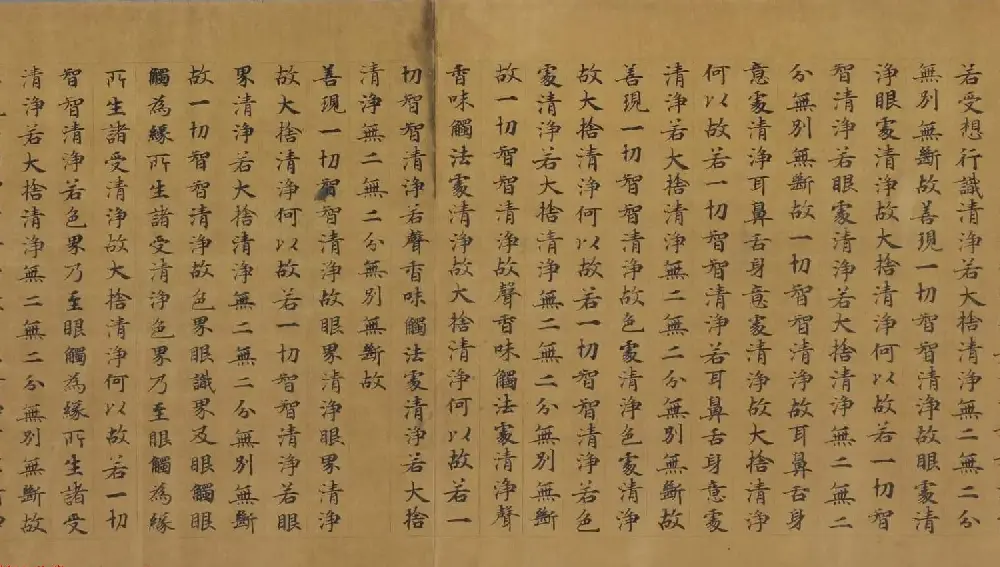 若受想行識清淨若大捨清淨無二無二分
無別無斷故善現一切智智清淨故眼處清
淨眼處清淨故大捨清淨何以故若一切智
智清淨若眼處清淨若大捨清淨無二無二
分無別無斷故一切智智清淨故耳鼻舌身
意處清淨耳鼻舌身意處清淨故大捨清淨
何以故若一切智智清淨若耳鼻舌身意處
清淨若大捨清淨無二無二分無別無斷故
善現一切智智清淨故色處清淨色處清淨
故大捨清淨何以故若一切智智清淨若色
處清淨若大捨清淨無二無二分無別無斷
故一切智智清淨故聲香味觸法處清淨聲
香味觸法處清淨故大捨清淨何以故若一
切智智清淨若聲香味觸法處清淨若大捨
清淨無二無二分無別無斷故
善現一切智智清淨故眼界清淨眼界清淨
故大捨清淨何以故若一切智智清淨若眼
界清淨若大捨清淨無二無二分無別無斷
故一切智智清淨故色界眼識界及眼觸眼
觸為緣所生諸受清淨色界乃至眼觸為緣
所生諸受清淨故大捨清淨何以故若一切
智智清淨若色界乃至眼觸為緣所生諸受
清淨若大捨清淨無二無二分無別無斷故